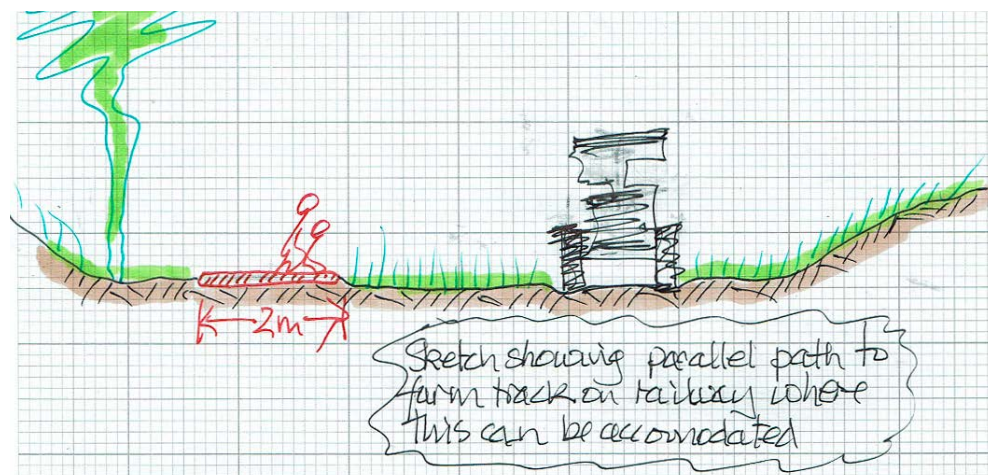 2m
Sketch showing parallel path to
farm track on railway where
this can be accomodated